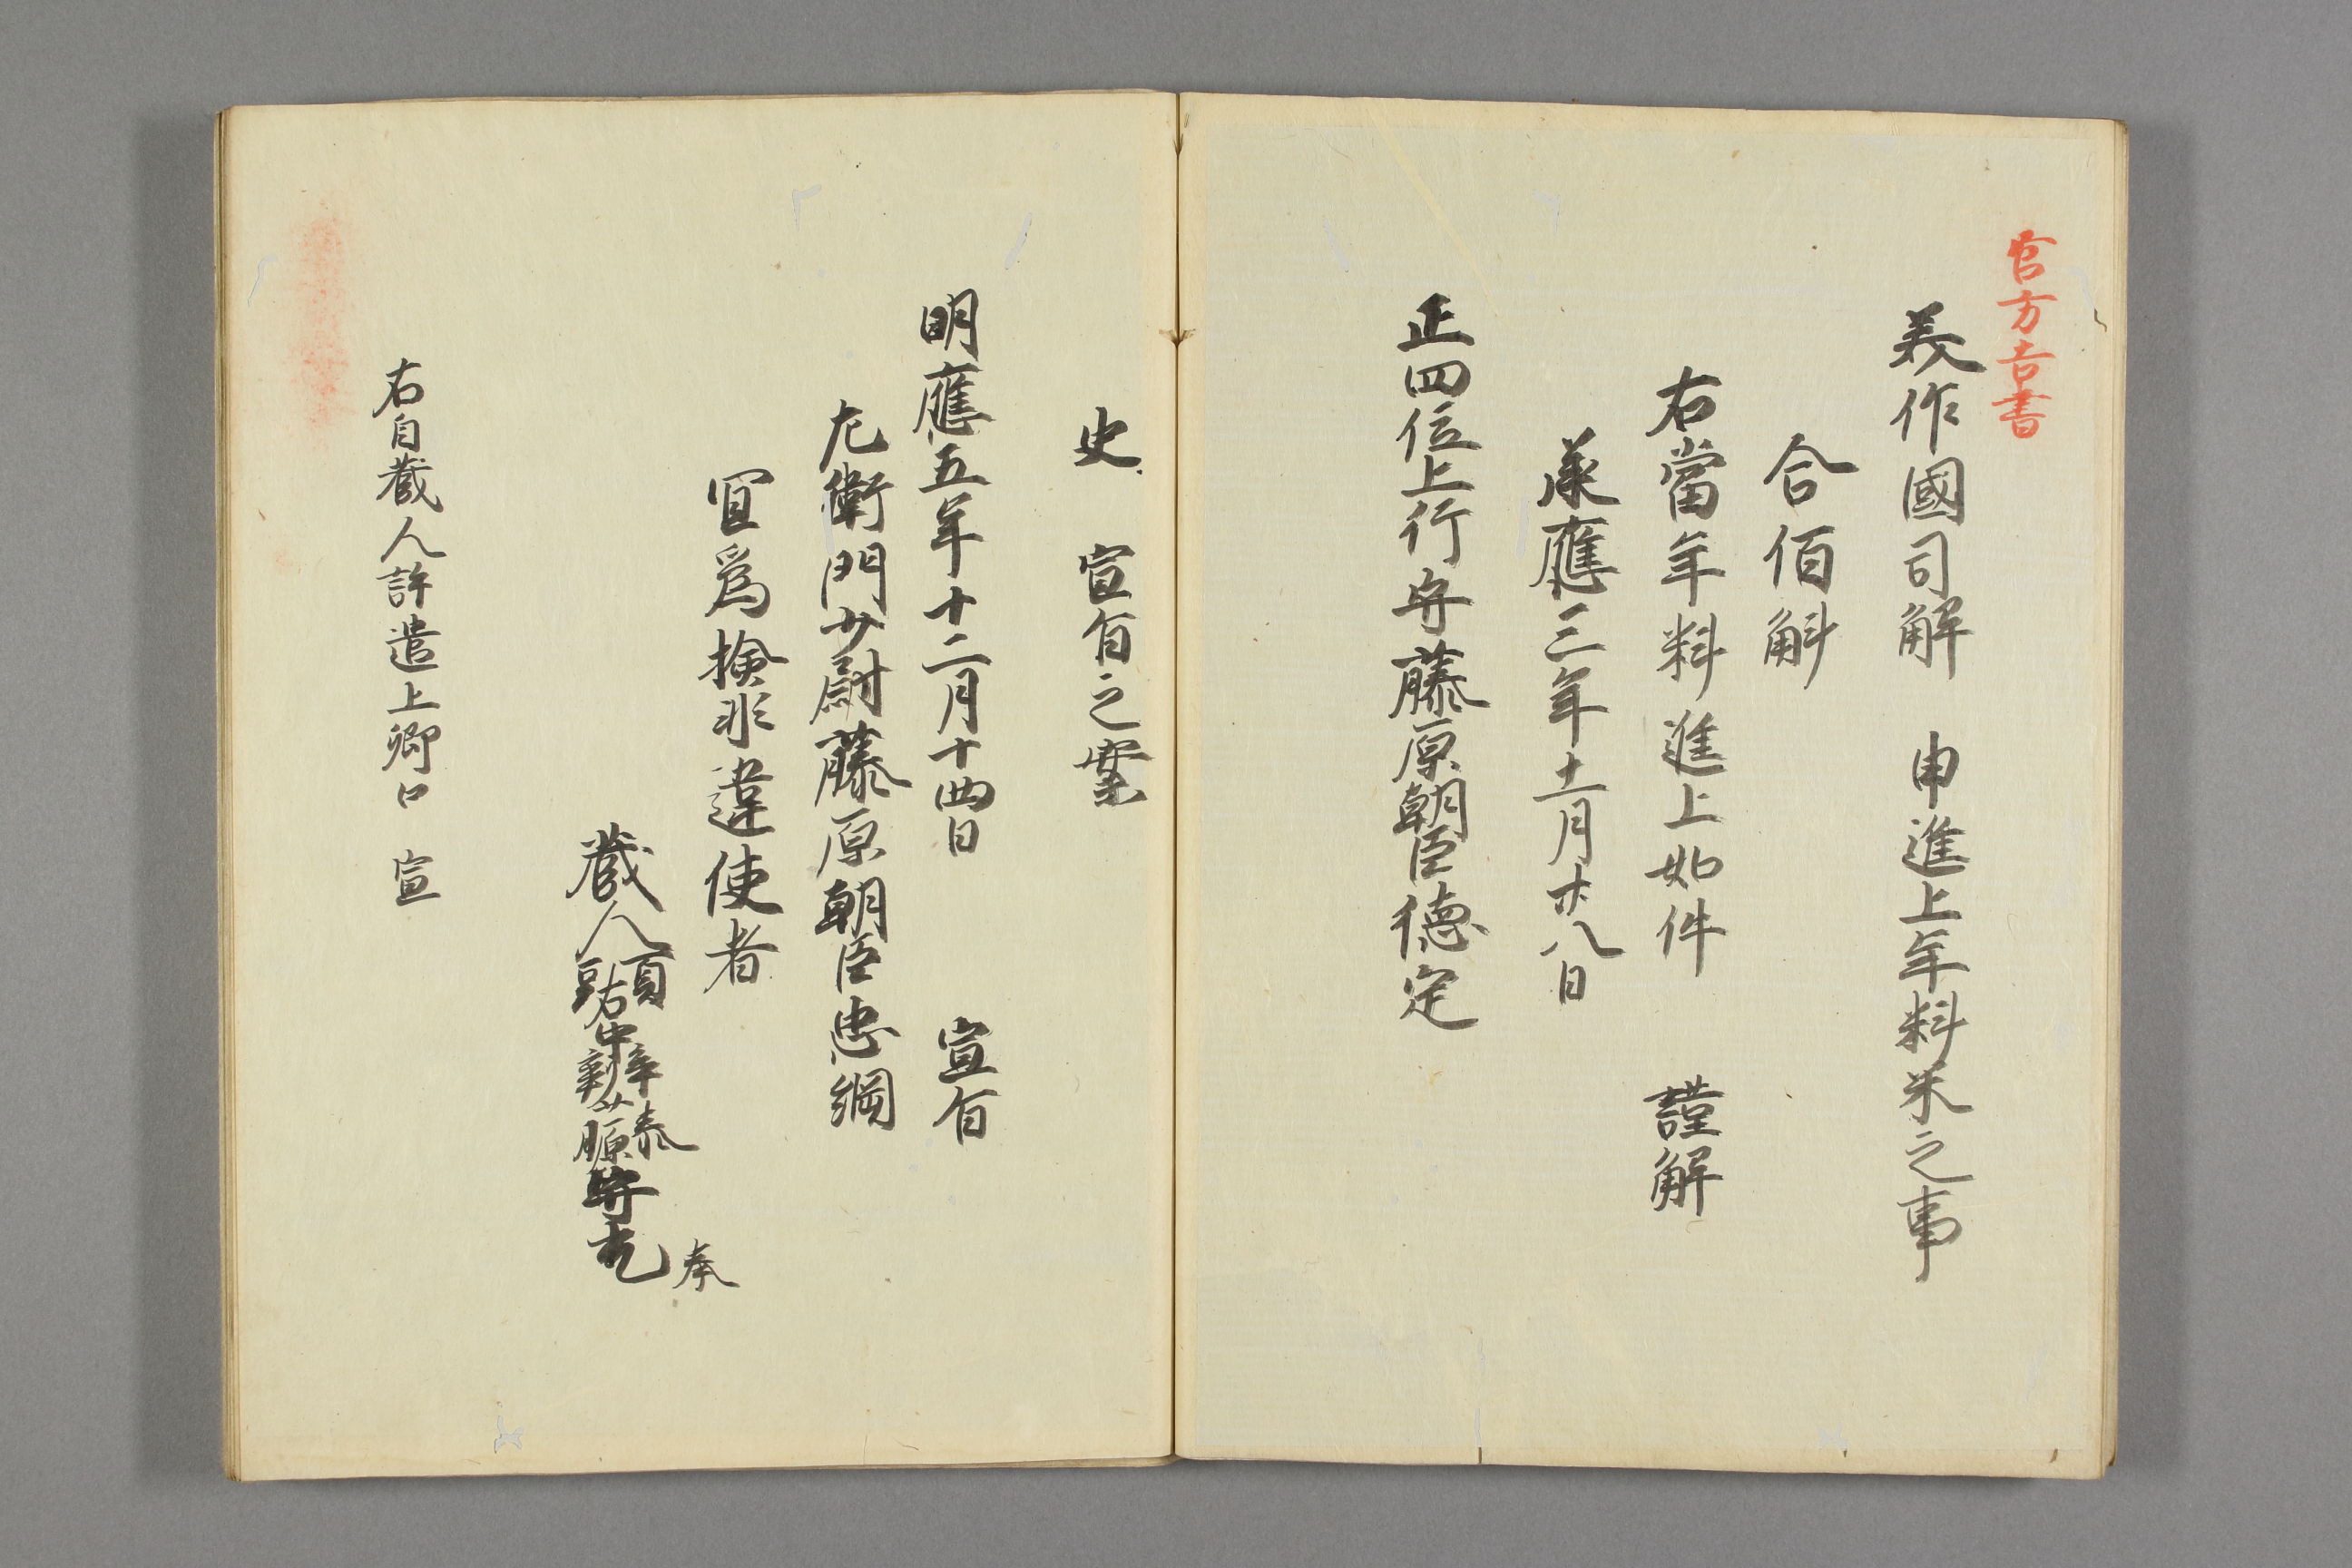 官方吉書
美作國司解　申進上年料米之事
合佰斛
右當年料進上如件　謹解
承應三年十一月廿八日
正四位上行守藤原朝臣德定
史　宣旨之案
明應五年十二月十四日　宣旨
左衛門少尉藤原朝臣忠綱
宜爲檢非違使者
藏人頭右中辨藤原守光 奉
右自藏人許遣上卿口　宣